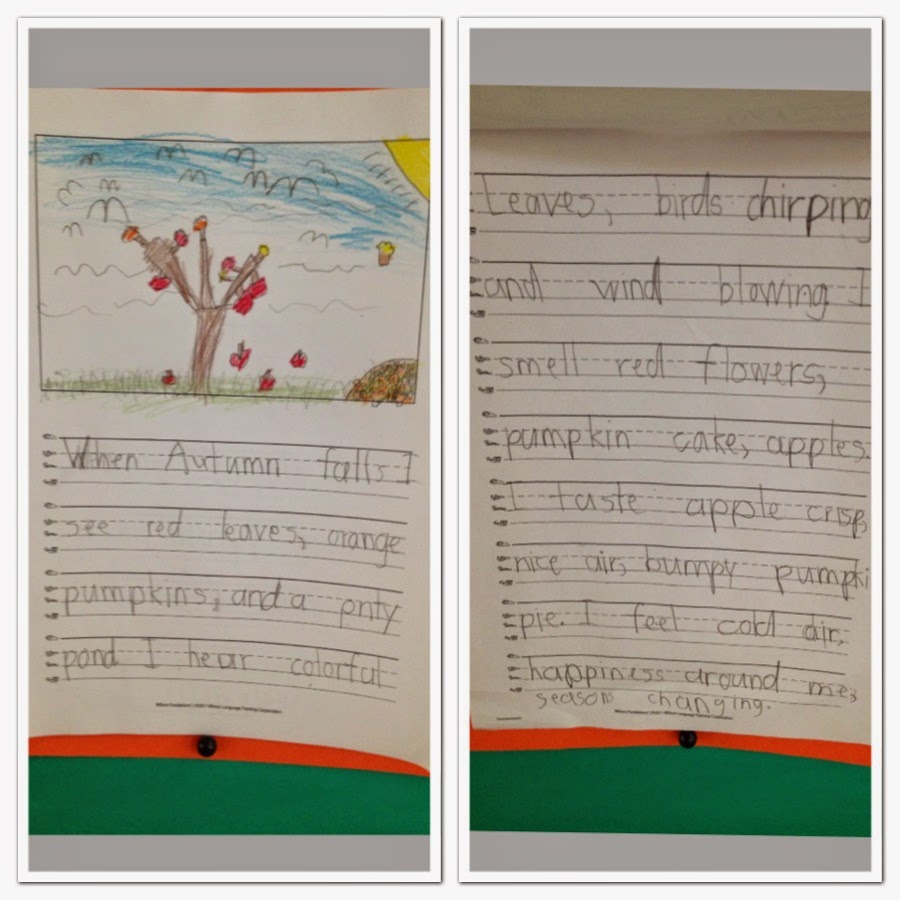 When Autumn falls I
see red leaves, orange
pumpkins, and a pnty
pond I hear colorful
leaves, birds chirping
and wind blowing I
smell red flowers,
pumpkin cake, apples.
I taste apple crisp,
nice air, bumpy pumpki
pie. I feel cold air,
happiness around me,
seasons changing.